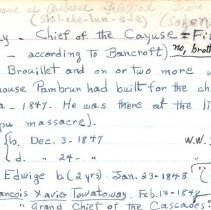 y - Chief of the Cayuse = Fi
- according to Bancroft) no, broth
Brouillet and on or two more w
house Pambrun had built for the ch
- 1847. He was there at the ti
pu massacre).
{b. Dec. 3 - 1847 W.W.
{d. " 24 - "
Edwige b (2 yrs) Jan. 23 - 1848
François Xavier Towatoway Feb. 13 - 184
"Grand Chief of the Cascades"